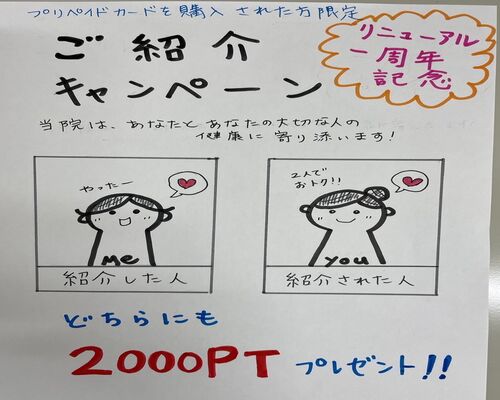 プリペイドカードを購入された方限定
ご紹介
キャンペーン
リニューアル
一周年
記念
当院は、あなたとあなたの大切な人の
健康に寄り添います!
やったー
me
紹介した人
2人で
おトク!!
you
紹介された人
どちらにも
2000PT プレゼント!!